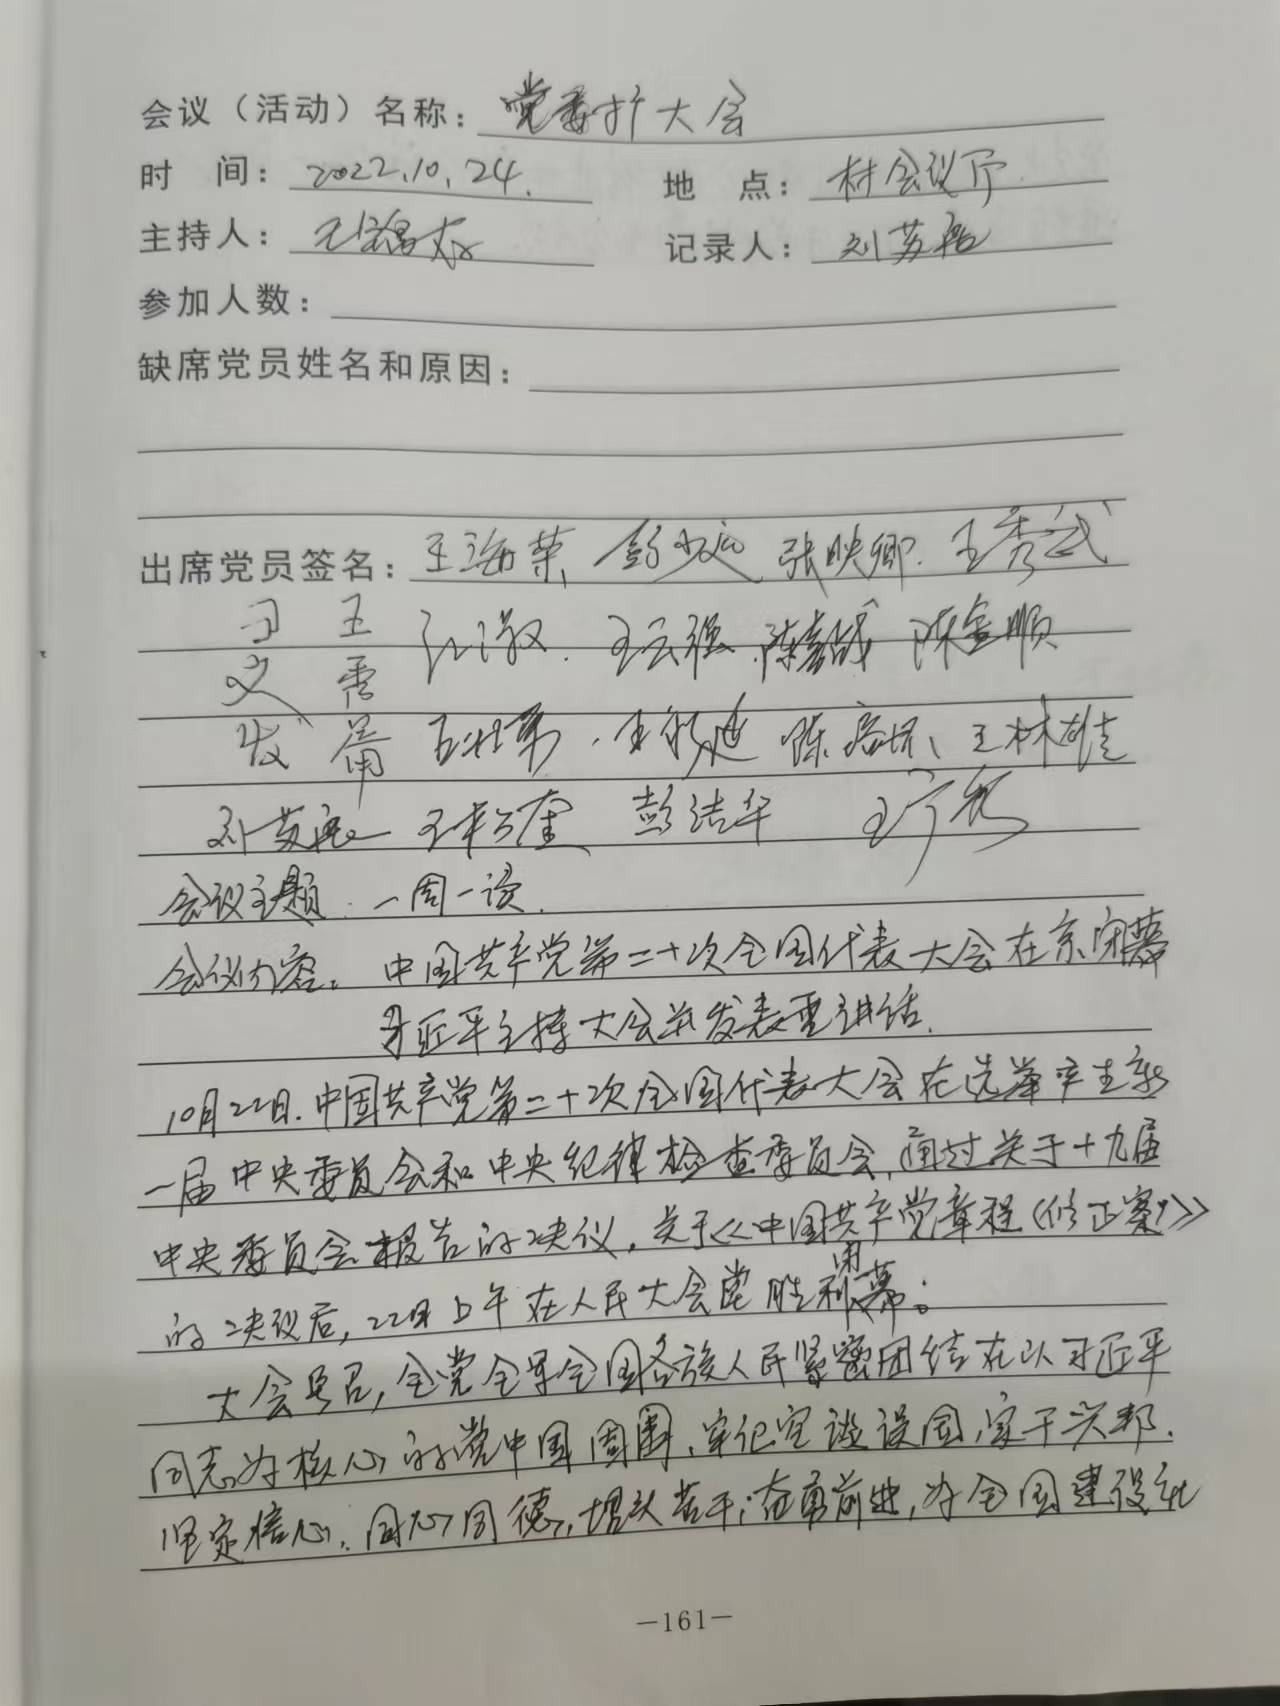 会议（活动）名称：党委扩大会
时 间：2022.10.24. 地 点：村会议厅
主持人： 记录人：刘苏
参加人数：
缺席党员姓名和原因：
出席党员签名：王海荣 张映卿. 王秀武
王云强 陈喜城 陈金顺
陈 王林雄
刘苏 彭洁华
会议主题：一周一读.
会议内容。中国共产党第二十次全国代表大会在京闭幕
习近平主持大会并发表重讲话.
10月22日.中国共产党第二十次全国代表大会在选举产生新
一届中央委员会和中央纪律检查委员会,通过关于十九届
中央委员会报告的决议,关于《中国共产党章程(修正案)》
的决议后,22日上午在人民大会堂胜利闭幕。
大会号召,全党全军全国各族人民紧密团结在以习近平
同志为核心的党中国周围,牢记空谈误国,实干兴邦.
坚定信心.同心同德,埋头苦干,奋勇前进,为全国建设社
—161—